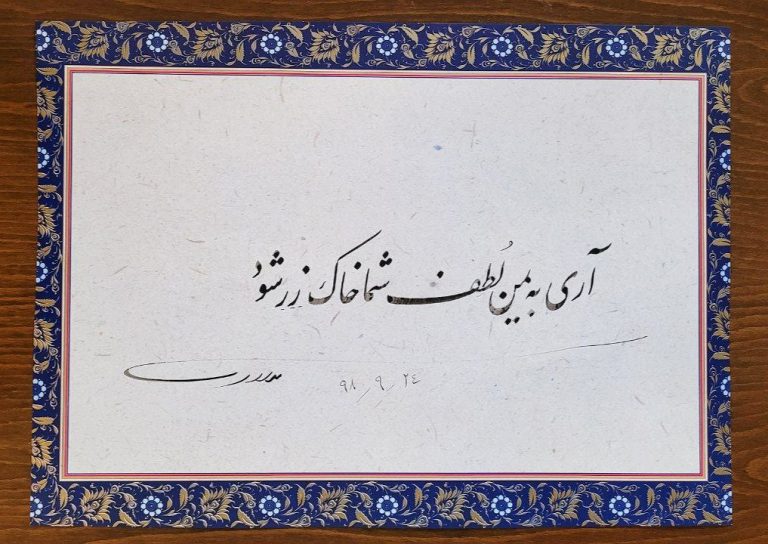 آری به یمن لُطف شما خاک زر شود
۹۸٫۹٫۲٤